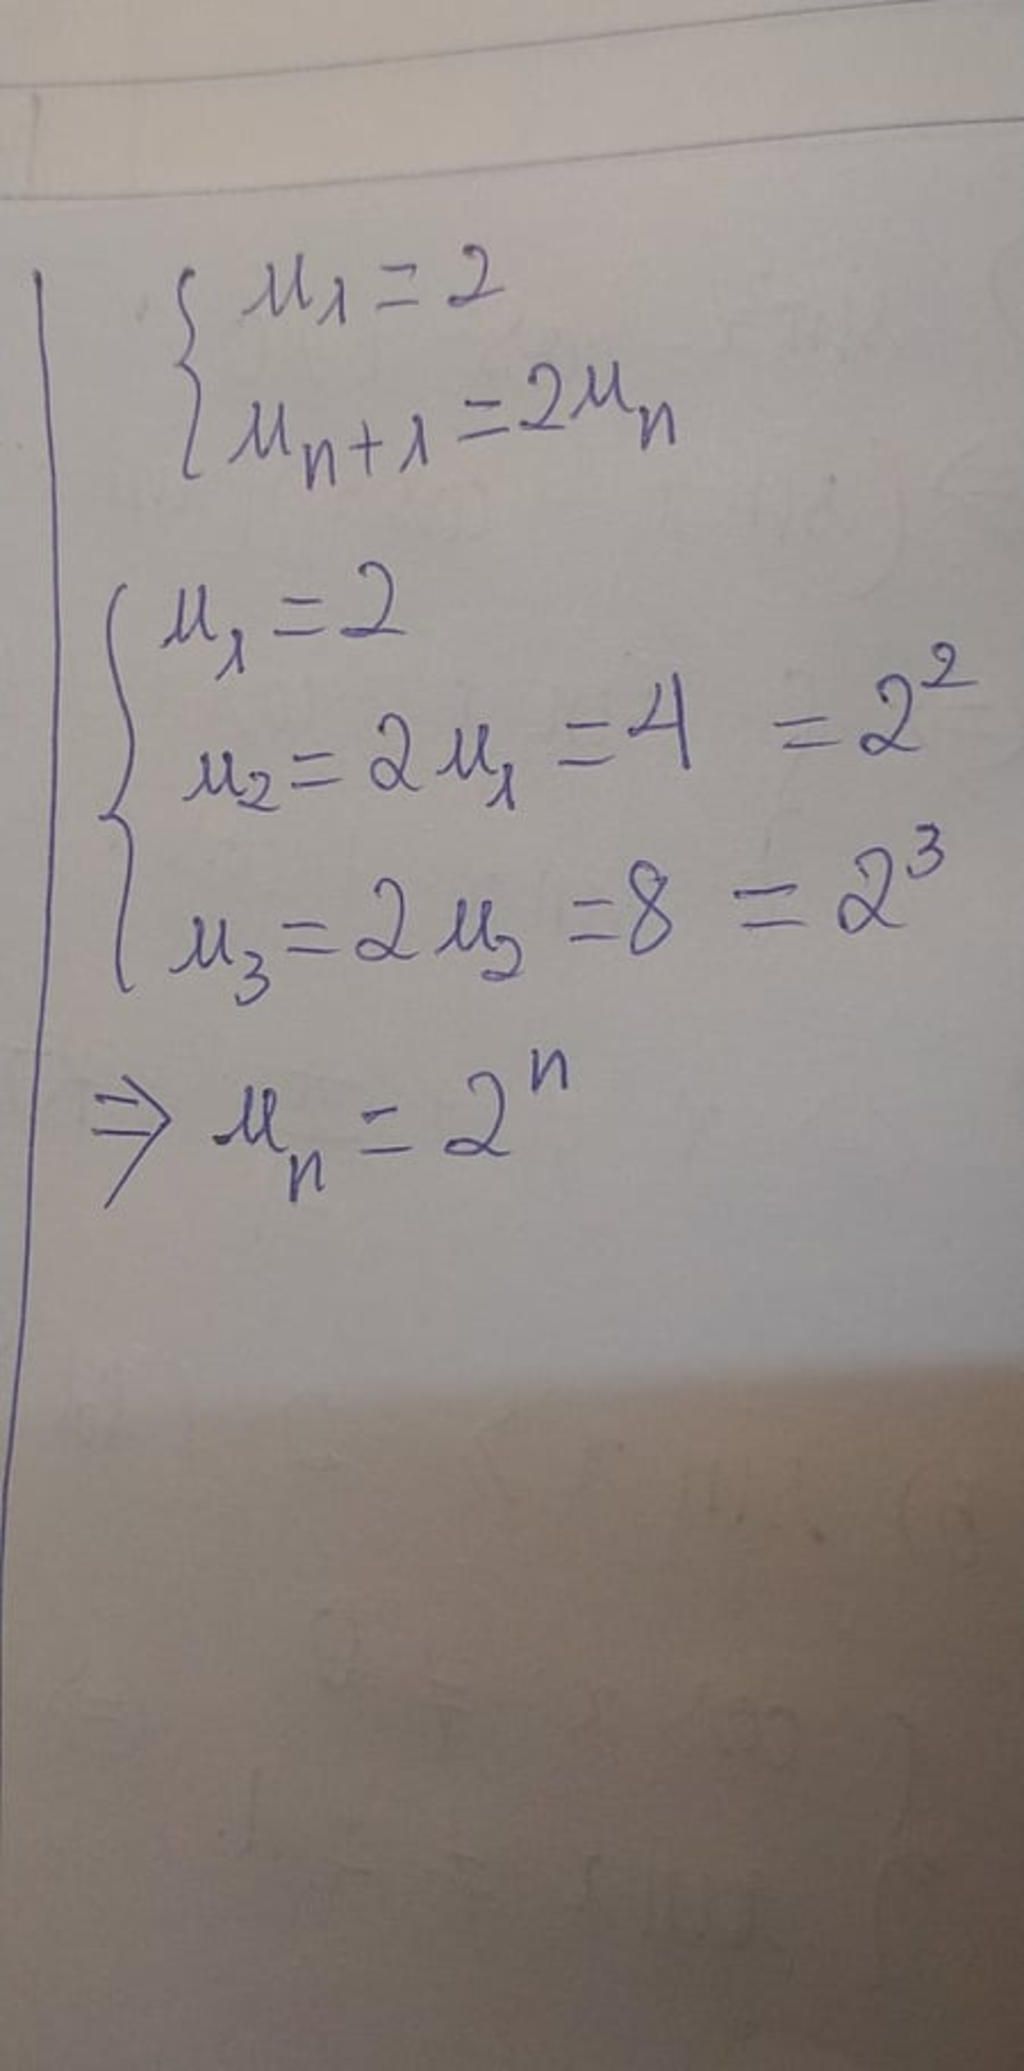 { u₁ = 2
{ uₙ₊₁ = 2uₙ
{ u₁ = 2
u₂ = 2u₁ = 4 = 2²
u₃ = 2u₂ = 8 = 2³
⇒ uₙ = 2ⁿ